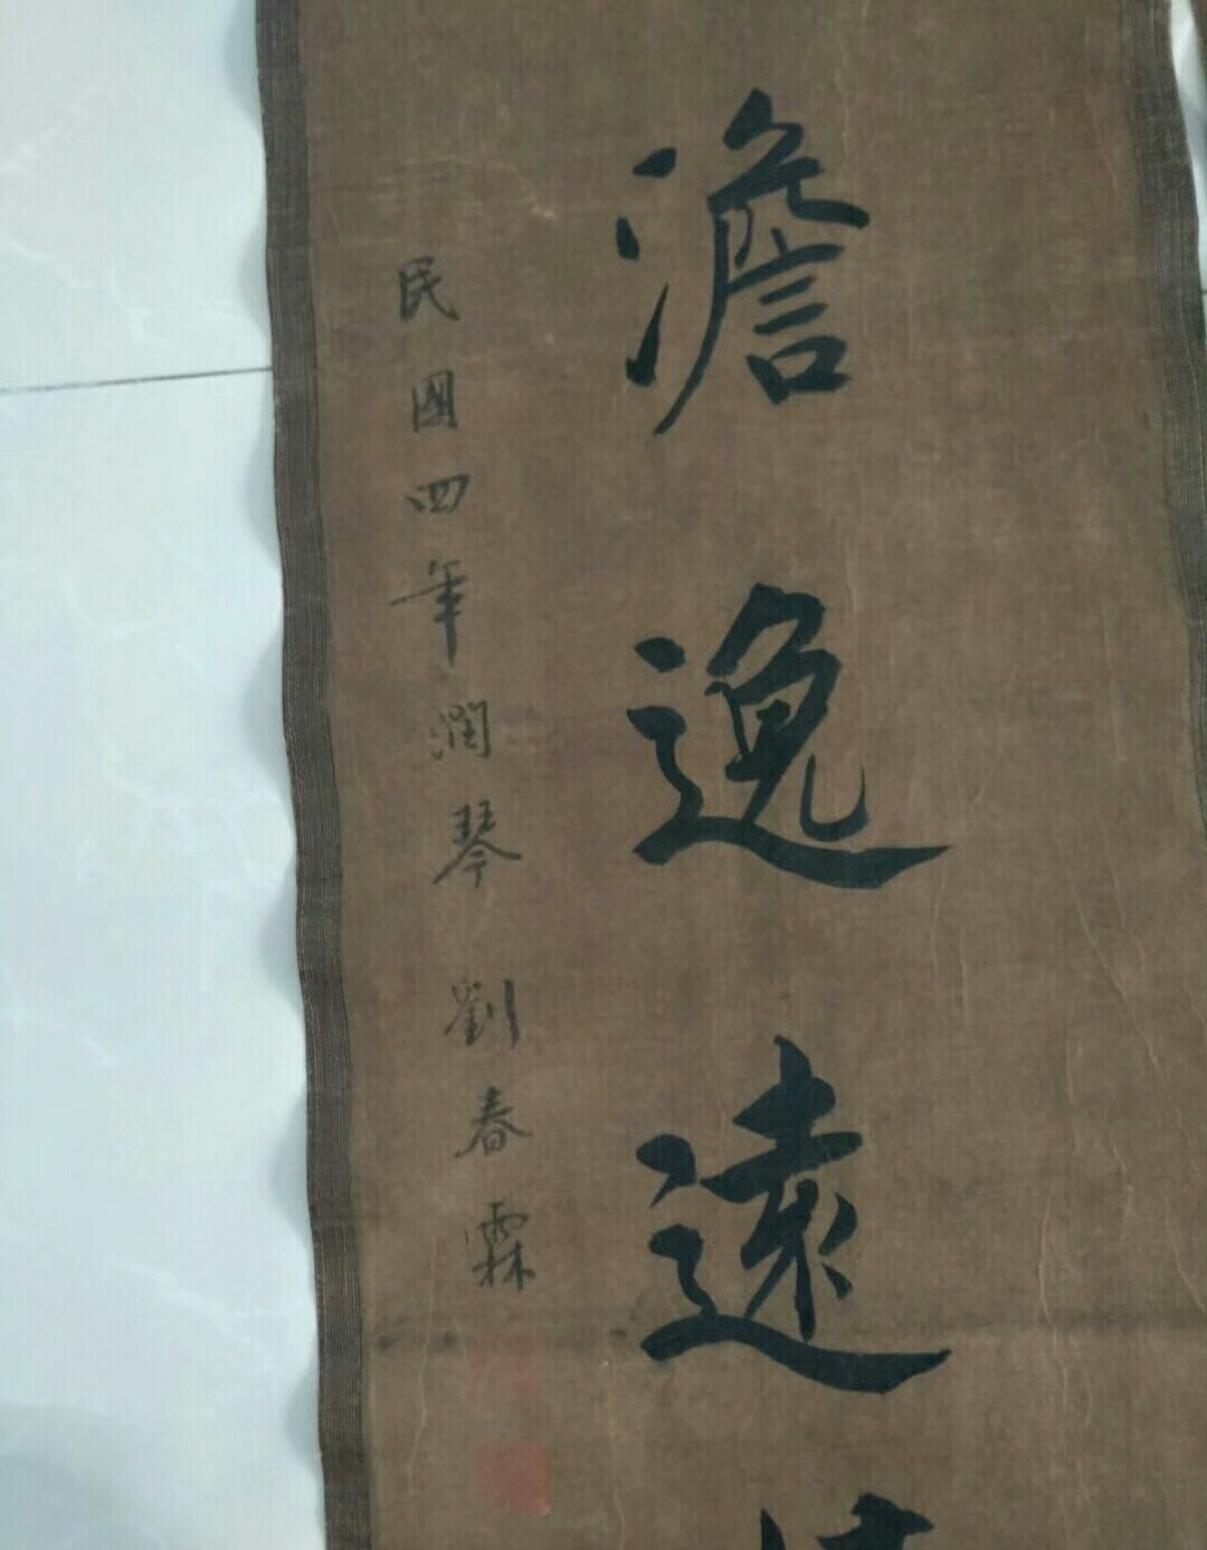 澹逸遠
民國四年潤琴劉春霖